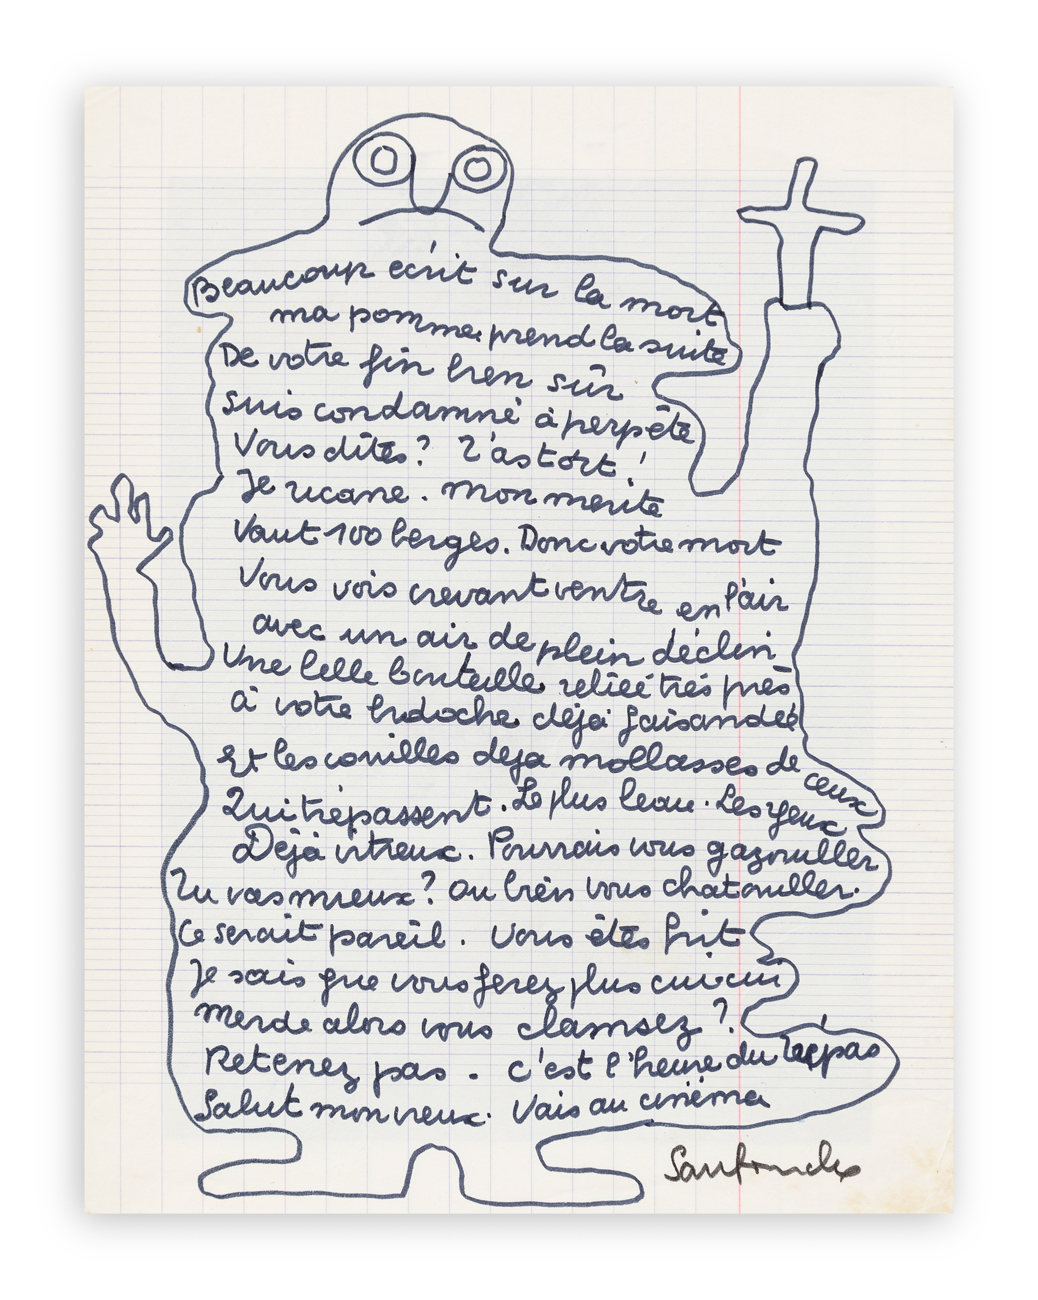 Beaucoup écrit sur la mort
ma pomme prend la suite
De votre fin bien sûr
suis condamné à perpète
Vous dîtes? T'as tort!
Je ricane. Mon mérite
Vaut 100 berges. Donc votre mort
Vous vois crevant ventre en l'air
avec un air de plein déclin
Une belle bouteille reliée très près
à votre bidoche déjà faisandée
Et les couilles déja mollasses de ceux
Qui trépassent. Le plus beau. Les yeux
Déjà vitreux. Pourrais vous gazouiller
Tu vas mieux? Ou bien vous chatouiller.
Ce serait pareil. Vous êtes frit
Je sais que vous ferez plus cui-cui
Merde alors vous clamsez?
Retenez pas. C'est l'heure du repas
Salut mon vieux. Vais au cinéma
Sanfourche